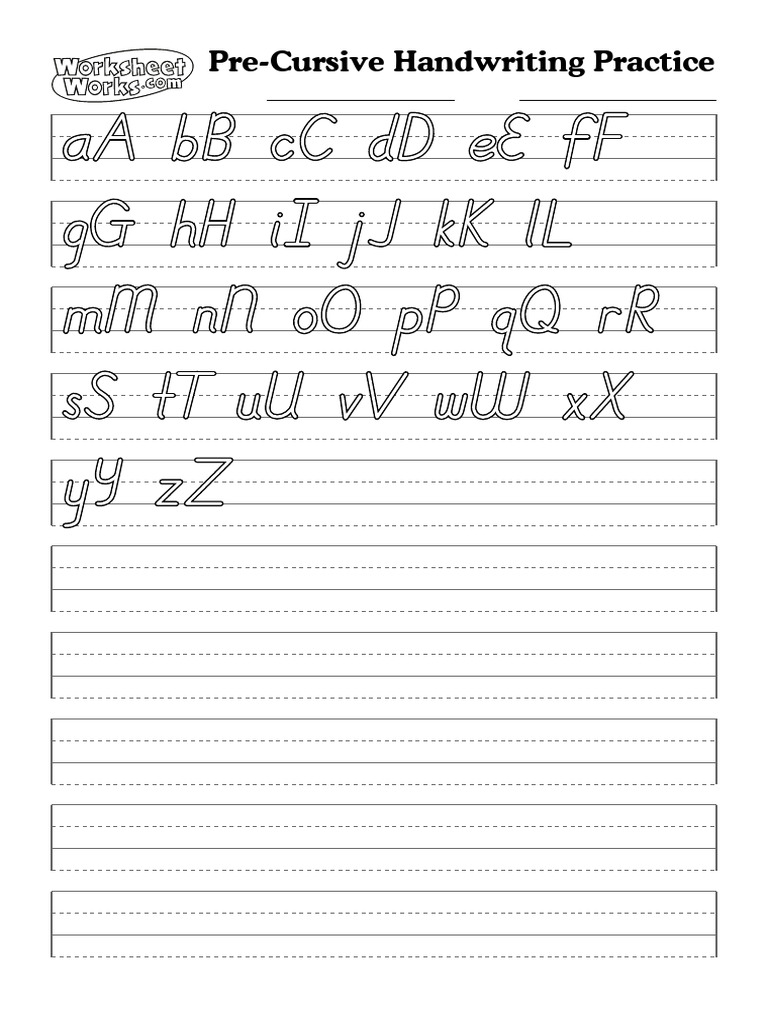 Worksheet Works.com
Pre-Cursive Handwriting Practice
aA bB cC dD eE fF
gG hH iI jJ kK lL
mM nN oO pP qQ rR
sS tT uU vV wW xX
yY zZ